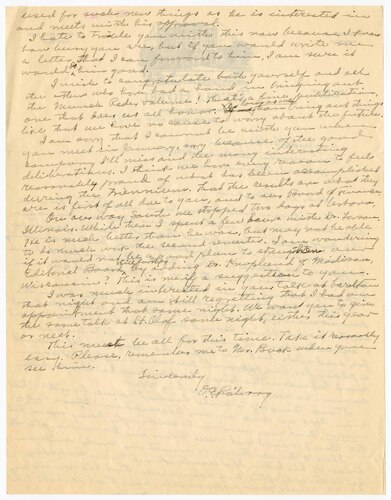 used for such new things as he is interested in
and meets with his approval.
I hate to trouble you with this now because I know
how busy you are, but if you would write me
a letter that I can forward to him, I am sure it
would help
I wish to congratulate both yourself and all
the others who have had a hand in bringing out
the Munich Peds volume! That is a fine publication,
one that does us all honor. If we can bring out things
like that we have no need to worry about the future.
I am sorry that I cannot be with you when
you meet in January, sorry because of the good
company I'll miss and the many interesting
deliberations. I think we have every reason to feel
reasonably proud of what has been accomplished
during the Triennium. that the results are what they
are is first of all due to you, and to our Board of Finance
On our way South we stopped two days at Urbana,
Illinois. While there I spent a few hours with Dr. Larsen.
He is much better than he was, but may not be able
to teach until the second semester. I am wondering
if it would not be wise and pleasing to strengthen our
Editorial Board, by adding Dr. of Madison,
Wisconsin? This is just a suggestion to you.
I was much interested in your talk at Carleton
that night and am still regretting that I had an
appointment that same night. We would want you to give
the same talk at St. Olaf some night, either this year
or next.
This must be all for this time. Take it reasonably
easy. Please, remember me to Mr. Buck when you
see him.
Sincerely
O. E. Rölvaag